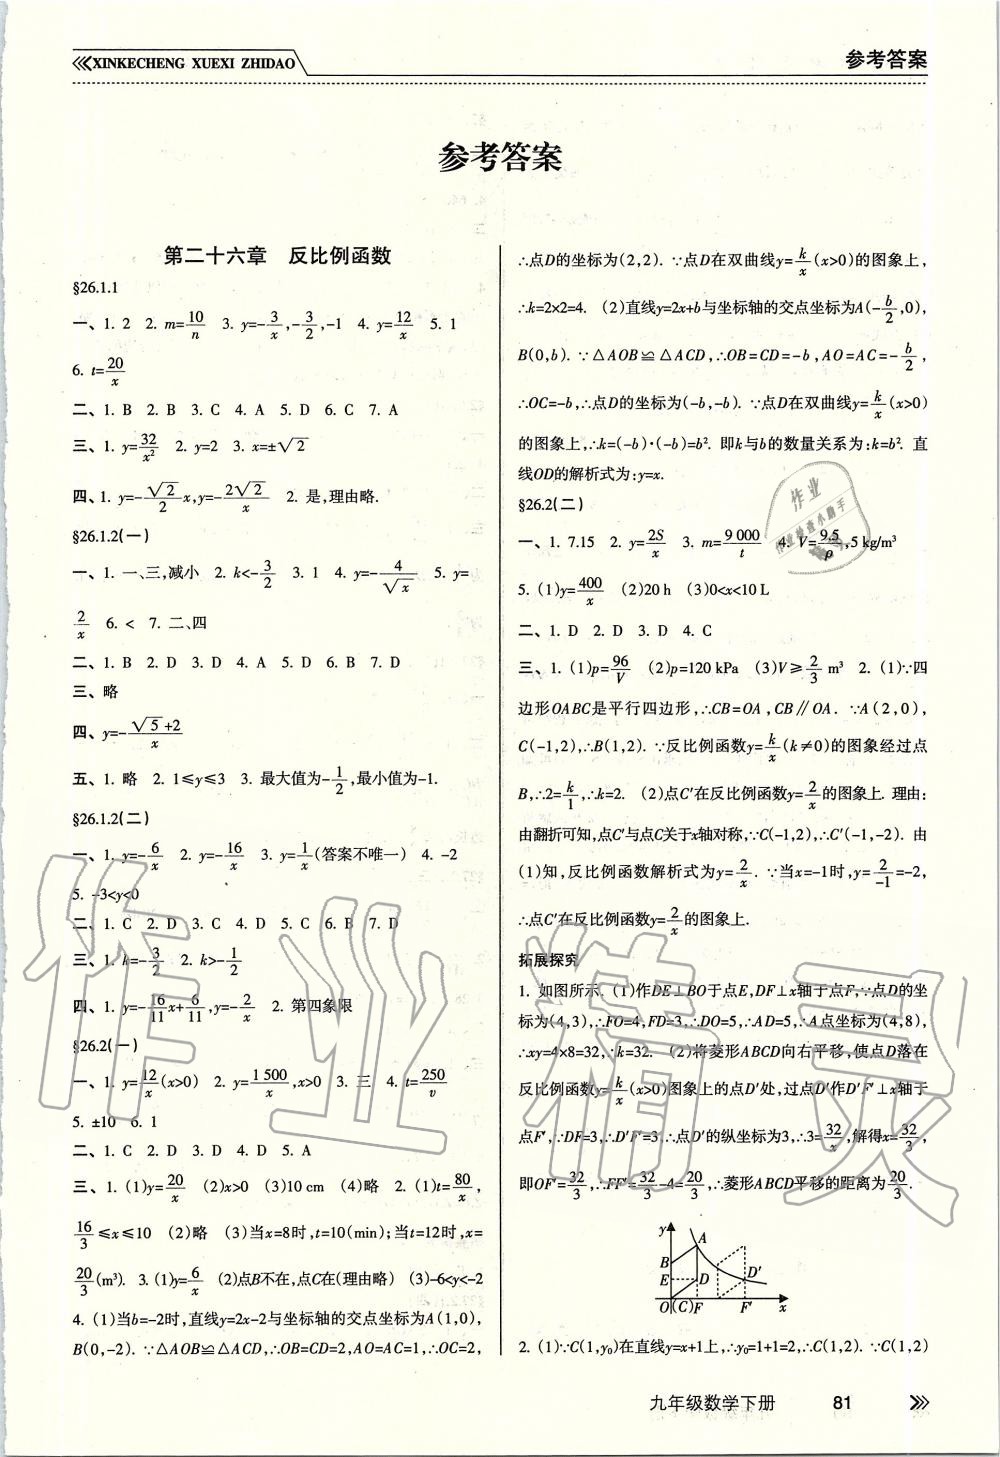 XINKECHENG XUEXI ZHIDAO
参考答案
参考答案
第二十六章 反比例函数
§26.1.1
一、1. 2 2. m=10/n 3. y=-3/x,-3/2,-1 4. y=12/x 5. 1
6. t=20/x
二、1. B 2. B 3. C 4. A 5. D 6. C 7. A
三、1. y=32/x² 2. y=2 3. x=±√2
四、1. y=-√2/2x,y=-2√2/x 2. 是,理由略.
§26.1.2(一)
一、1. 一、三,减小 2. k<-3/2 3. 1 4. y=-4/√x 5. y=
2/x 6. < 7. 二、四
二、1. B 2. D 3. D 4. A 5. D 6. B 7. D
三、略
四、y=-√5+2/x
五、1. 略 2. 1≤y≤3 3. 最大值为-1/2,最小值为-1.
§26.1.2(二)
一、1. y=-6/x 2. y=-16/x 3. y=1/x(答案不唯一) 4. -2
5. -3<y<0
二、1. C 2. D 3. C 4. D 5. C 6. B 7. D
三、1. k=-3/2 2. k>-1/2
四、1. y=-16/11x+6/11,y=-2/x 2. 第四象限
§26.2(一)
一、1. y=12/x(x>0) 2. y=1 500/x,x>0 3. 三 4. t=250/v
5. ±10 6. 1
二、1. C 2. D 3. D 4. D 5. A
三、1. (1)y=20/x (2)x>0 (3)10 cm (4)略 2. (1)t=80/x,
16/3≤x≤10 (2)略 (3)当x=8时,t=10(min);当t=12时,x=
20/3(m³). 3. (1)y=6/x (2)点B不在,点C在(理由略) (3)-6<y<-2
4. (1)当b=-2时,直线y=2x-2与坐标轴的交点坐标为A(1,0),
B(0,-2). ∵△AOB≌△ACD,∴OB=CD=2,AO=AC=1,∴OC=2,
∴点D的坐标为(2,2). ∵点D在双曲线y=k/x(x>0)的图象上,
∴k=2×2=4. (2)直线y=2x+b与坐标轴的交点坐标为A(-b/2,0),
B(0,b). ∵△AOB≌△ACD,∴OB=CD=-b,AO=AC=-b/2,
∴OC=-b,∴点D的坐标为(-b,-b). ∵点D在双曲线y=k/x(x>0)
的图象上,∴k=(-b)·(-b)=b². 即k与b的数量关系为:k=b². 直
线OD的解析式为:y=x.
§26.2(二)
一、1. 7.15 2. y=2S/x 3. m=9 000/t 4. V=9.5/ρ,5 kg/m³
5. (1)y=400/x (2)20 h (3)0<x<10 L
二、1. D 2. D 3. D 4. C
三、1. (1)p=96/V (2)p=120 kPa (3)V≥2/3 m³ 2. (1)∵四
边形OABC是平行四边形,∴CB=OA,CB∥OA. ∵A(2,0),
C(-1,2),∴B(1,2). ∵反比例函数y=k/x(k≠0)的图象经过点
B,∴2=k/1,∴k=2. (2)点C′在反比例函数y=2/x的图象上. 理由:
由翻折可知,点C′与点C关于x轴对称,∵C(-1,2),∴C′(-1,-2). 由
(1)知,反比例函数解析式为y=2/x. ∵当x=-1时,y=2/-1=-2,
∴点C′在反比例函数y=2/x的图象上.
拓展探究
1. 如图所示. (1)作DE⊥BO于点E,DF⊥x轴于点F,∵点D的坐
标为(4,3),∴FO=4,FD=3,∴DO=5,∴AD=5,∴A点坐标为(4,8),
∴xy=4×8=32,∴k=32. (2)将菱形ABCD向右平移,使点D落在
反比例函数y=k/x(x>0)图象上的点D′处,过点D′作D′F′⊥x轴于
点F′,∵DF=3,∴D′F′=3.∴点D′的纵坐标为3,∴3=32/x,解得x=32/3,
即OF′=32/3,∴FF′=32/3-4=20/3,∴菱形ABCD平移的距离为20/3.
y
A
B
E D D′
O (C) F F′ x
2. (1)∵C(1,y₀)在直线y=x+1上,∴y₀=1+1=2,∴C(1,2). ∵C(1,2)
九年级数学下册 81
作业精灵
作业
作业检查小助手